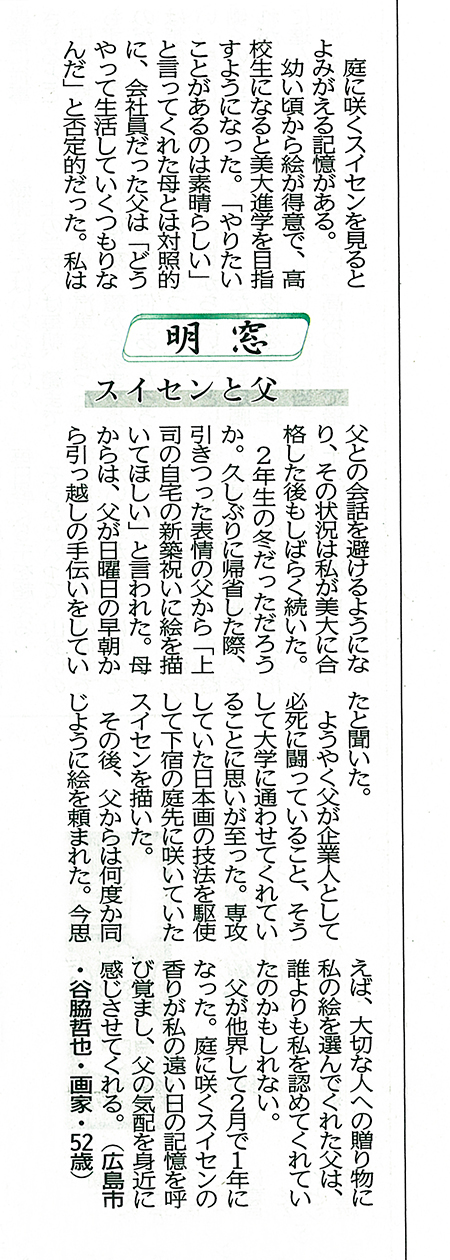 明窓
スイセンと父
庭に咲くスイセンを見ると
よみがえる記憶がある。
幼い頃から絵が得意で、高
校生になると美大進学を目指
すようになった。「やりたい
ことがあるのは素晴らしい」
と言ってくれた母とは対照的
に、会社員だった父は「どう
やって生活していくつもりな
んだ」と否定的だった。私は
父との会話を避けるようにな
り、その状況は私が美大に合
格した後もしばらく続いた。
2年生の冬だっただろう
か。久しぶりに帰省した際、
引きつった表情の父から「上
司の自宅の新築祝いに絵を描
いてほしい」と言われた。母
からは、父が日曜日の早朝か
ら引っ越しの手伝いをしてい
たと聞いた。
ようやく父が企業人として
必死に闘っていること、そう
して大学に通わせてくれてい
ることに思いが至った。専攻
していた日本画の技法を駆使
して下宿の庭先に咲いていた
スイセンを描いた。
その後、父からは何度か同
じように絵を頼まれた。今思
えば、大切な人への贈り物に
私の絵を選んでくれた父は、
誰よりも私を認めてくれてい
たのかもしれない。
父が他界して2月で1年に
なった。庭に咲くスイセンの
香りが私の遠い日の記憶を呼
び覚まし、父の気配を身近に
感じさせてくれる。（広島市
・谷脇哲也・画家・52歳）